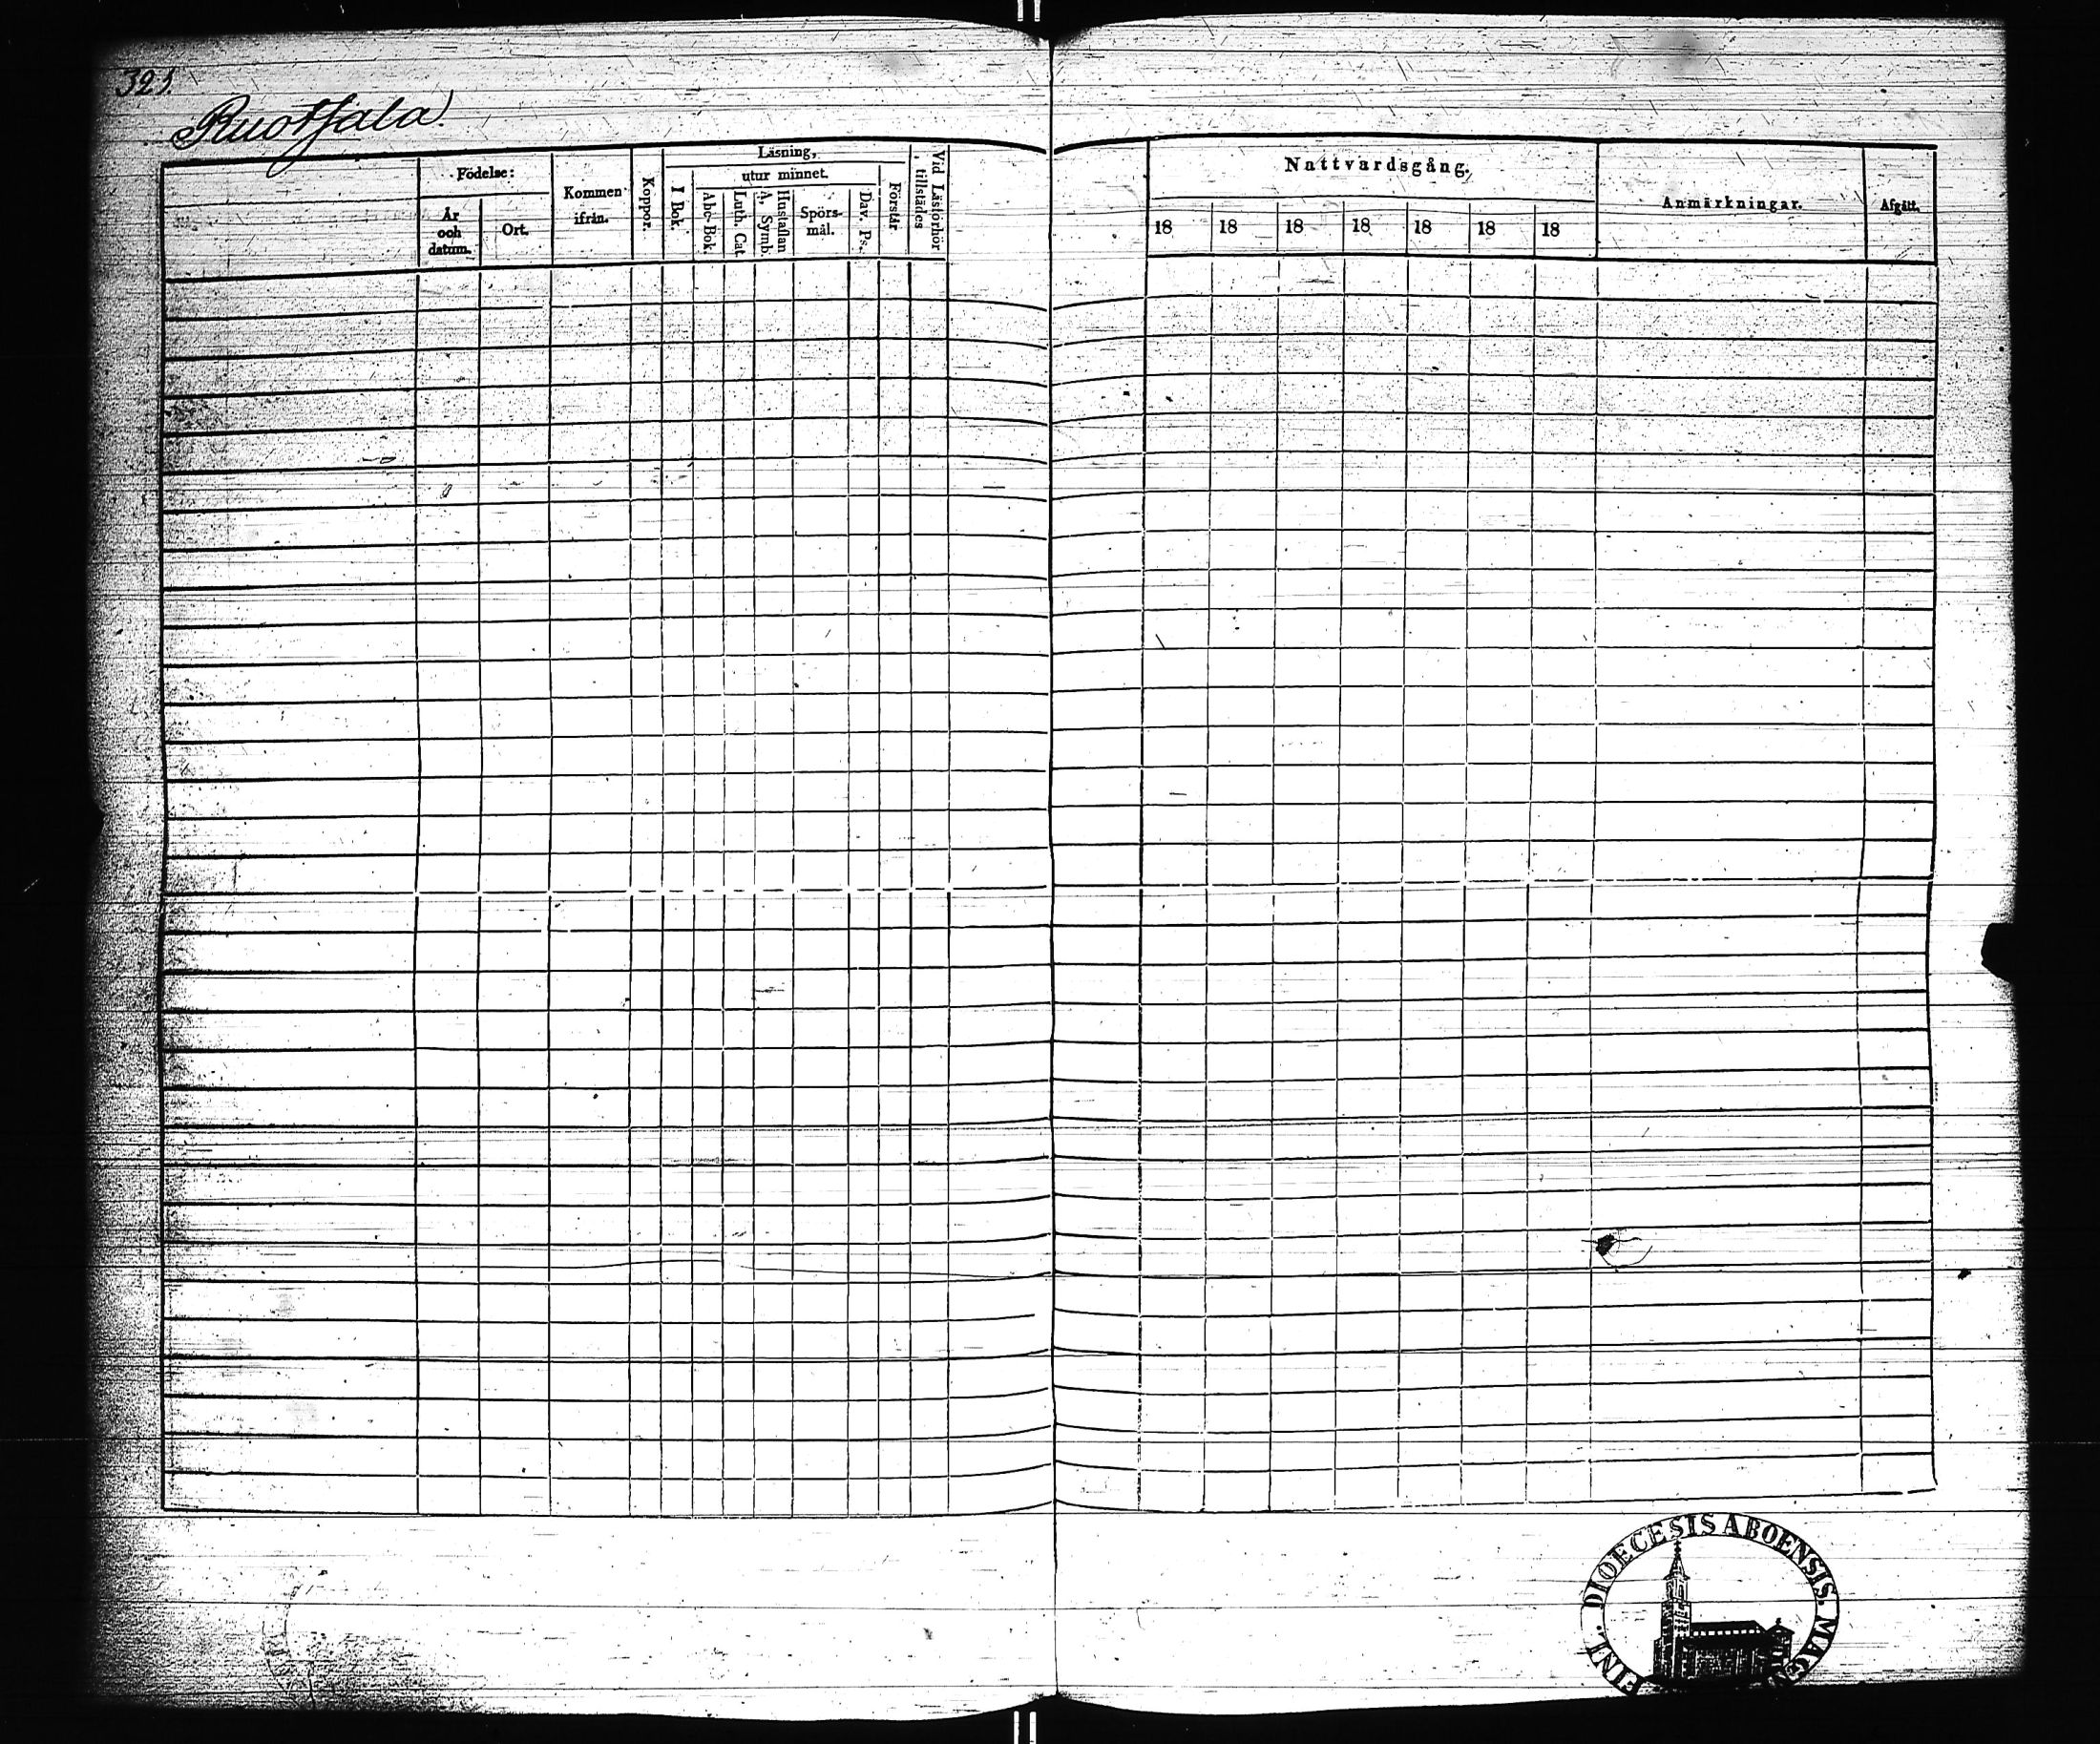 321.
Ruotsala
Födelse:
År och datum.
Ort.
Kommen ifrån.
Koppor.
Läsning,
I Bok.
utur minnet.
Abc-Bok.
Luth. Cat.
Hustaflan A. Symb.
Spörsmål.
Dav. Ps.
Förstår
Vid Läsförhör tillstädes
Nattvardsgång.
18 18 18 18 18 18 18
Anmärkningar.
Afgått.
DIOECESIS ABOENSIS. MAG
FINL.